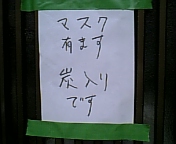 マスク
有ます
炭入り
です